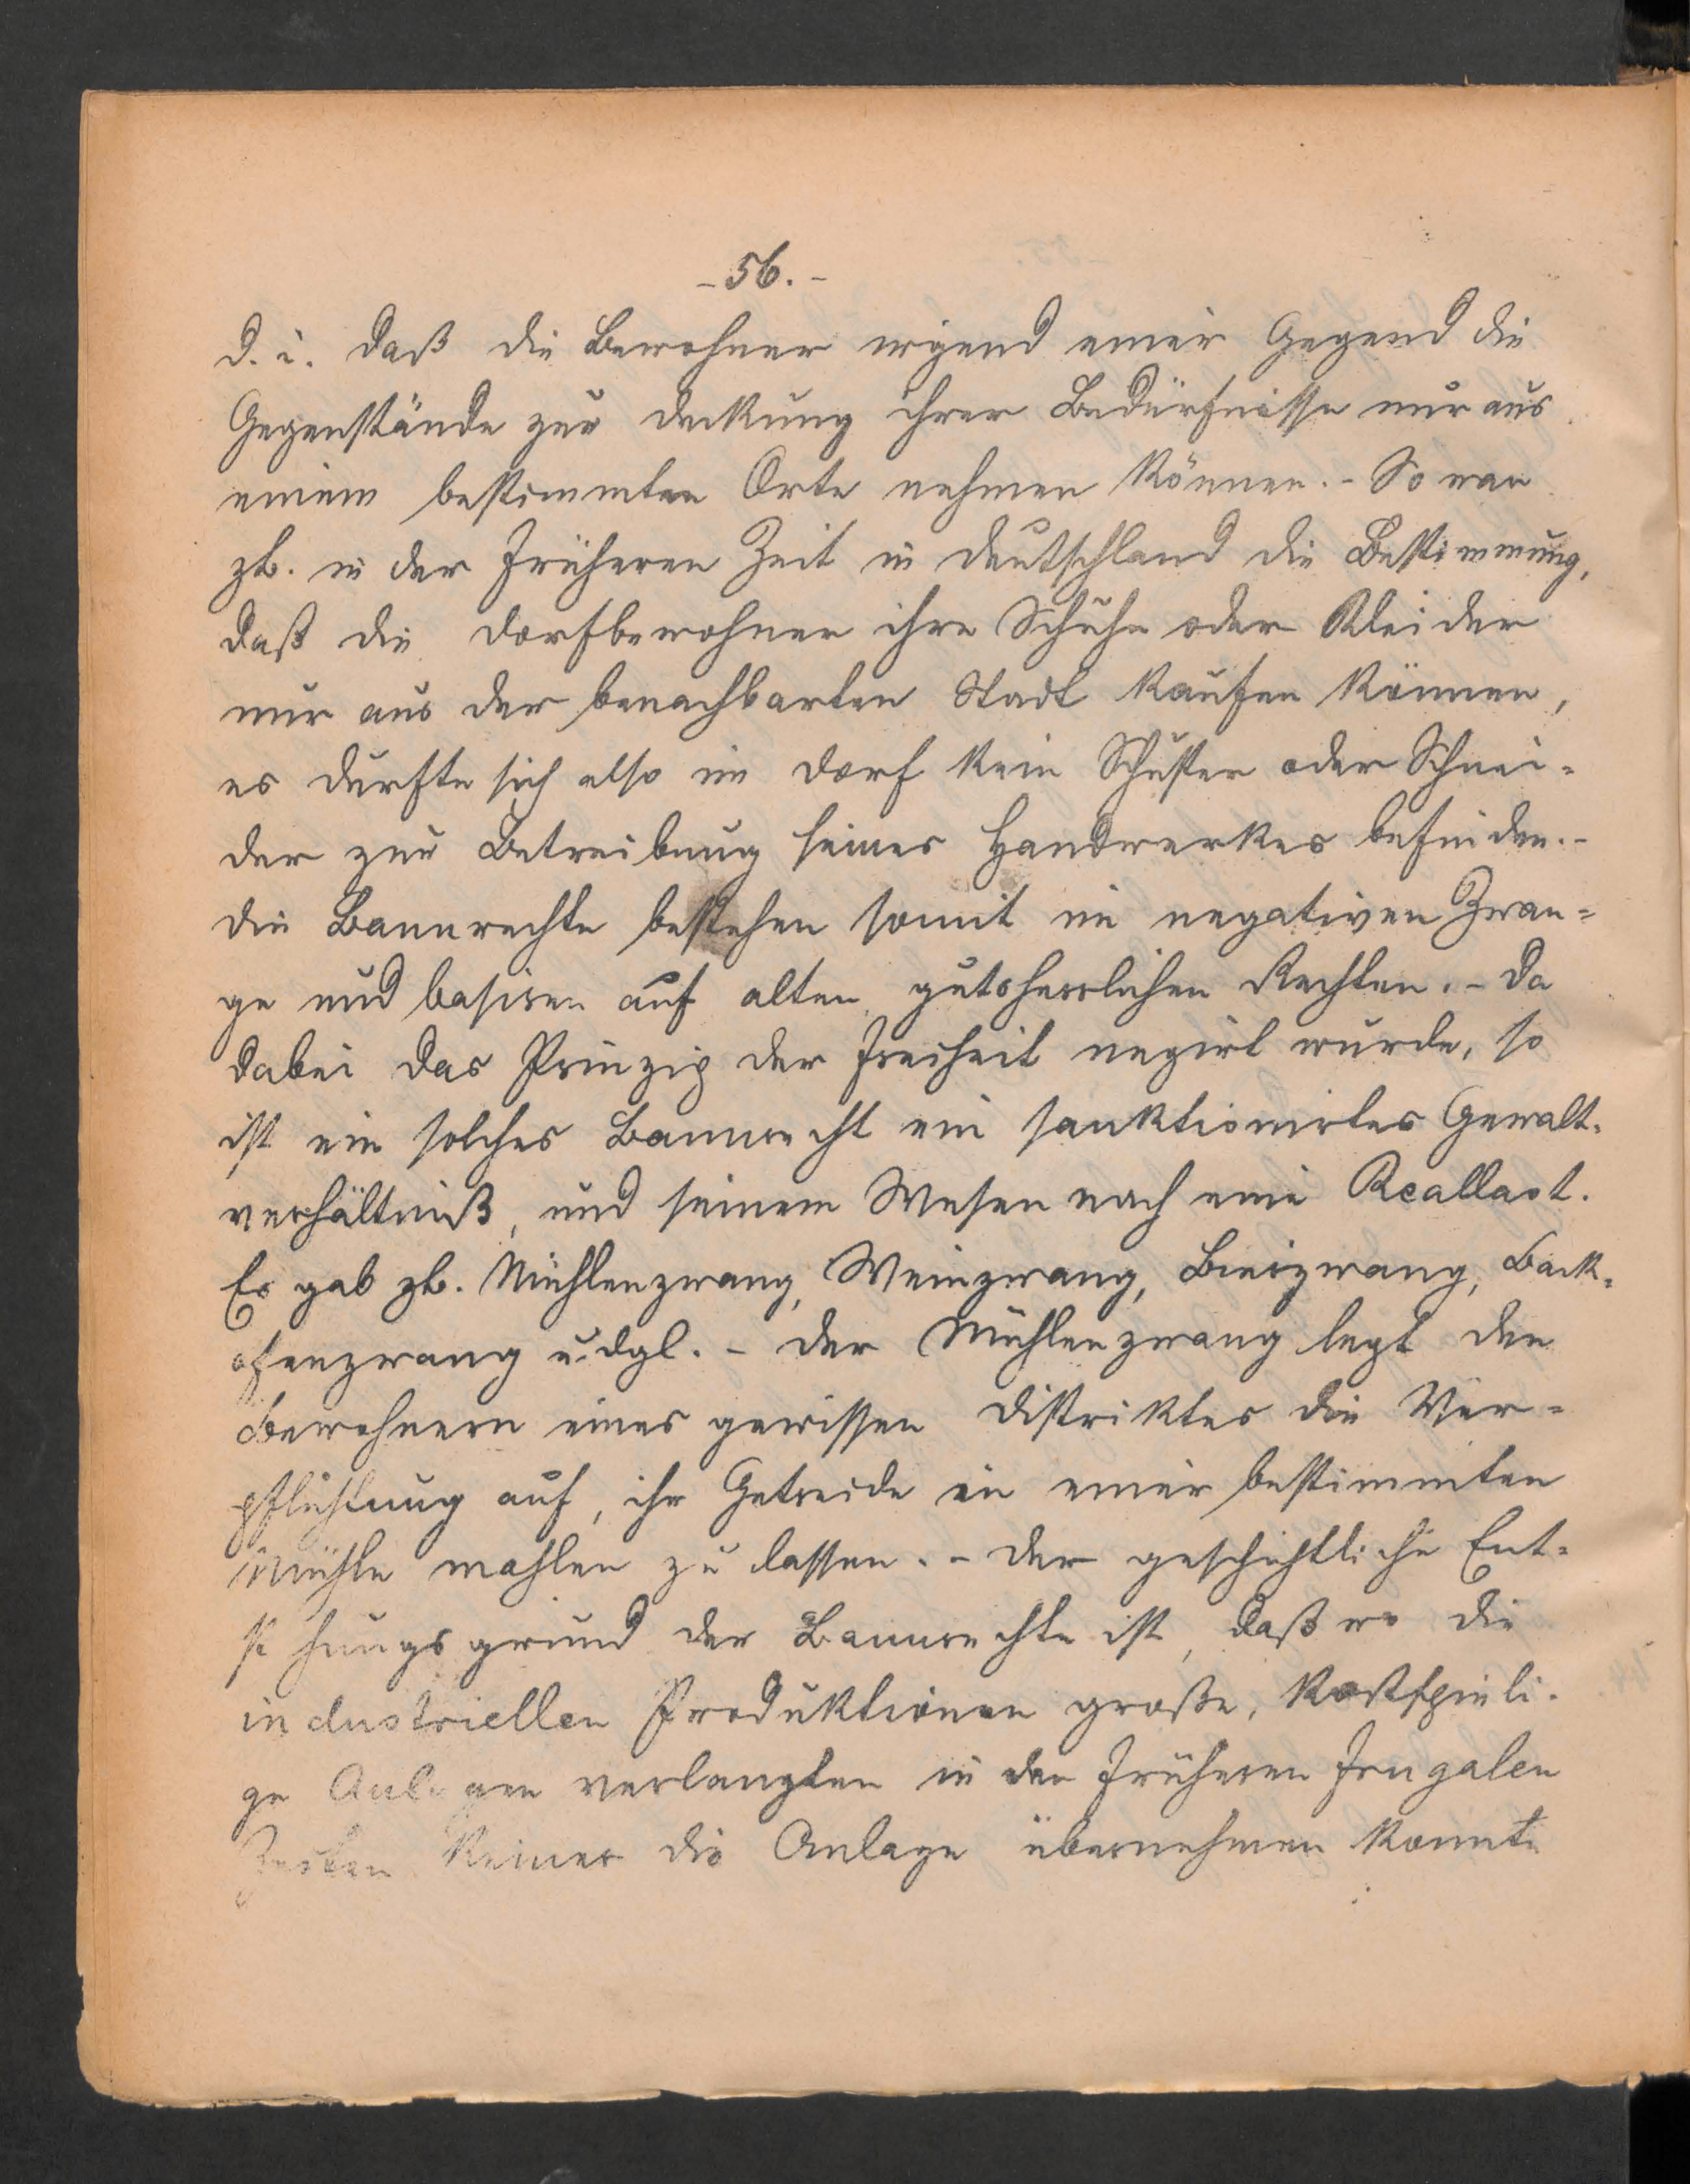 - 56. -
d. i. daß die Bewohner irgend einer Gegend die
Gegenstände zur Deckung ihrer Bedürfnisse nur aus
einem bestimmten Orte nehmen können. - So war
zb. in der früheren Zeit in Deutschland die Bestimmung,
daß die Dorfbewohner ihre Schuhe oder Kleider
nur aus der benachbarten Stadt kaufen können,
es durfte sich also im Dorf kein Schuster oder Schnei=
der zur Betreibung seines Handwerkes befinden. -
Die Bannrechte bestehen somit im negativen Zwan=
ge und basiren auf alten gutsherrlichen Rechten. - Da
dabei das Prinzip der Freiheit negirt wurde, so
ist ein solches Bannrecht ein sanktionirtes Gewalt=
verhältniß, und seinem Wesen nach eine Reallast.
Es gab zb. Mühlenzwang, Weinzwang, Bierzwang, Back=
ofenzwang u. dgl. - Der Mühlenzwang legt den
Bewohnern eines gewissen Distriktes die Ver=
pflichtung auf, ihr Getreide in einer bestimmten
Mühle mahlen zu lassen. - Der geschichtliche Ent=
stehungsgrund der Bannrechte ist, daß wo die
industriellen Produktionen große, kostspieli=
ge Anlagen verlangten in den früheren frugalen
Zeiten keiner die Anlage übernehmen konnte